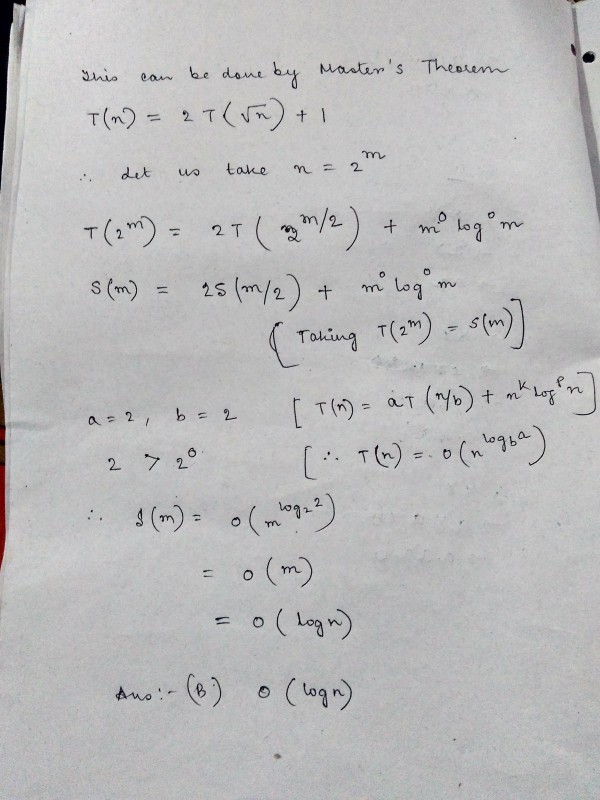 This can be done by Master's Theorem
T(n) = 2 T(√n) + 1
∴ Let us take n = 2^m
T(2^m) = 2T(2^m/2) + m^0 log^0 m
S(m) = 2S(m/2) + m^0 log^0 m
[Taking T(2^m) = S(m)]
a = 2, b = 2 [T(n) = aT(n/b) + n^k log^p n]
2 > 2^0 [∴ T(n) = O(n^log_b a)
∴ S(m) = O(m^log_2 2)
= O(m)
= O(log n)
Ans:- (B) O(log n)